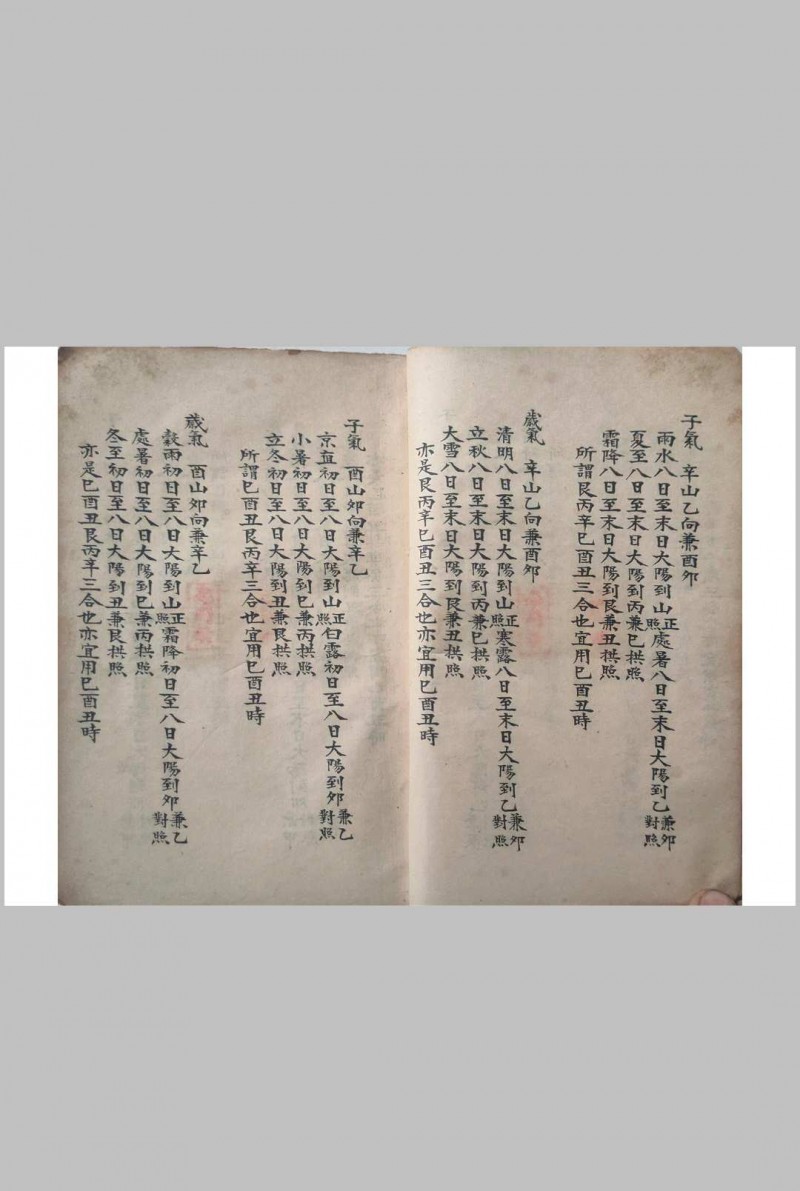 子氣　辛山乙向兼酉卯
雨水八日至末日大陽到山正照處暑八日至末日大陽到乙兼卯對照
夏至八日至末日大陽到丙兼巳拱照
霜降八日至末日大陽到艮兼丑拱照
所謂艮丙辛巳酉丑三合也宜用巳酉丑時
歲氣　辛山乙向兼酉卯
清明八日至末日大陽到山正照寒露八日至末日大陽到乙兼卯對照
立秋八日至末日大陽到丙兼巳拱照
大雪八日至末日大陽到艮兼丑拱照
亦是艮丙辛巳酉丑三合也亦宜用巳酉丑時
子氣　酉山卯向兼辛乙
初日至八日大陽到山正照白露初日至八日大陽到卯兼乙對照
小暑初日至八日大陽到巳兼丙拱照
立冬初日至八日大陽到丑兼艮拱照
所謂巳酉丑艮丙辛三合也宜用巳酉丑時
歲氣　酉山卯向兼辛乙
穀雨初日至八日大陽到山正照霜降初日至八日大陽到卯兼乙對照
處暑初日至八日大陽到巳兼丙拱照
冬至初日至八日大陽到丑兼艮拱照
亦是巳酉丑艮丙辛三合也亦宜用巳酉丑時